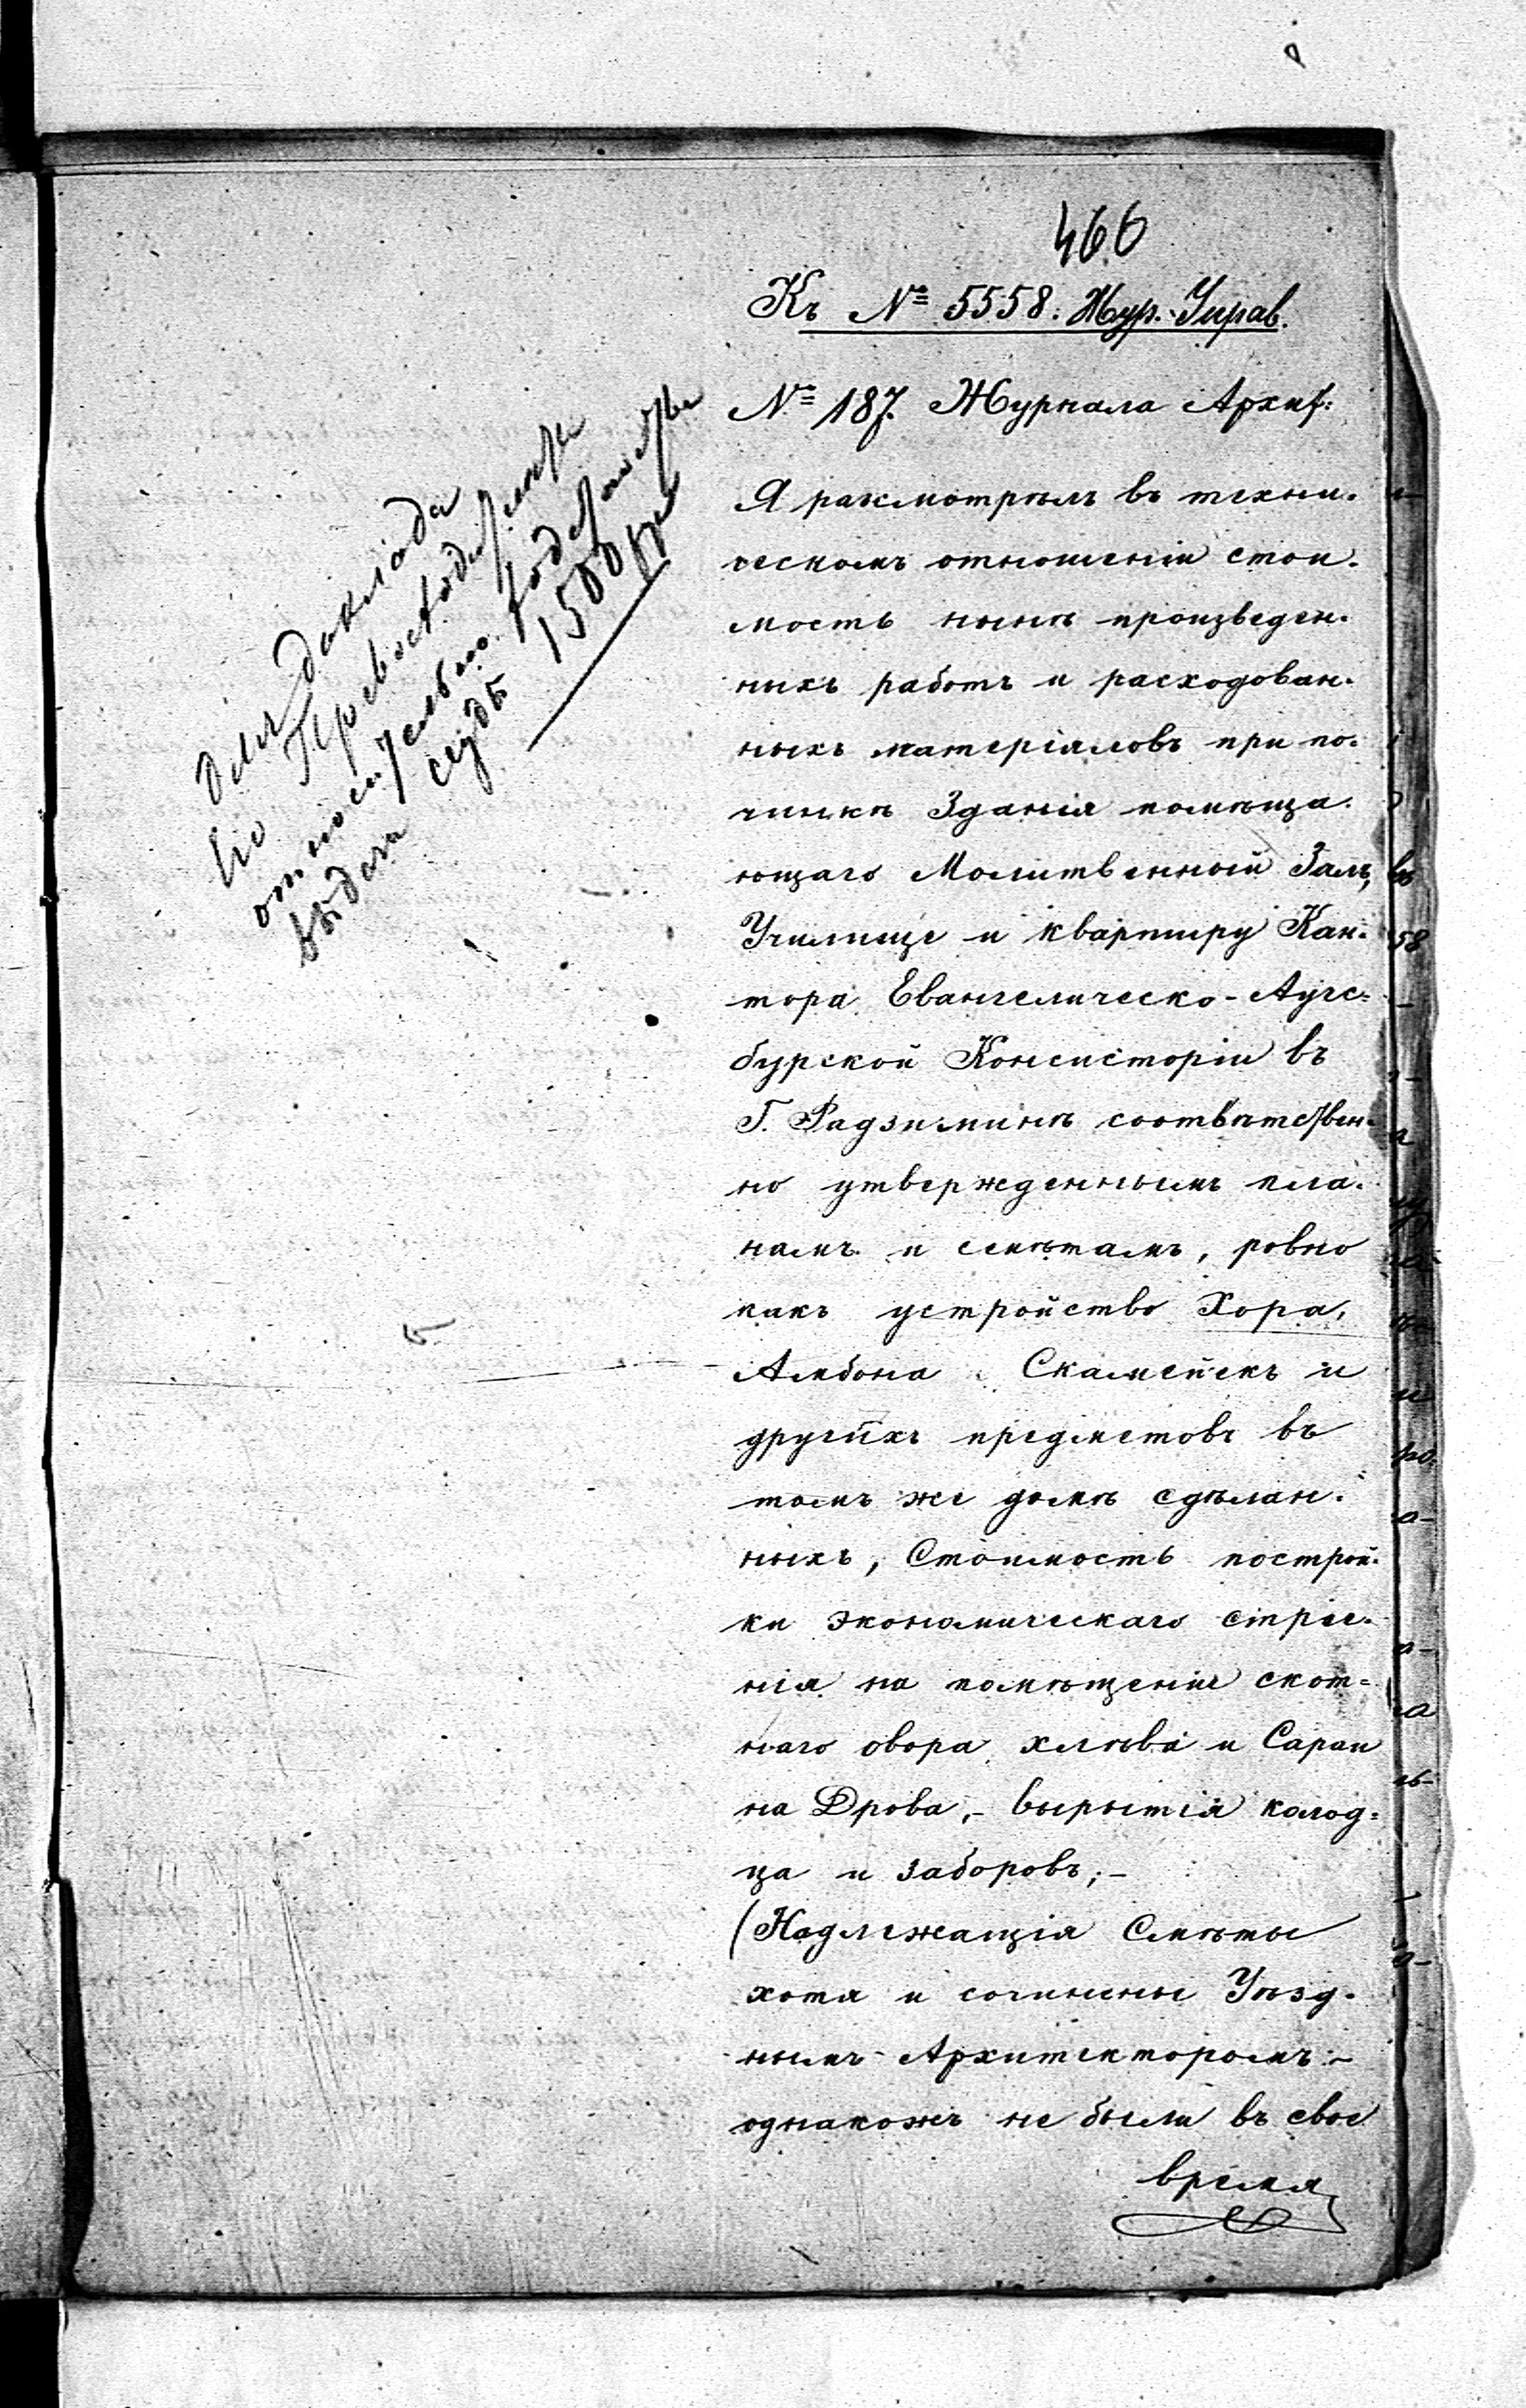 466
Къ № 5558. Жур. Управ.
№ 187. Журнала Архит:
Для доклада
Его Превосходительству
относительно ходатайства
выдачи ссуды 1500 руб
Я разсмотрѣлъ въ техни-
ческомъ отношеніи стои-
мость нынѣ произведен-
ныхъ работъ и расходован-
ныхъ матеріаловъ при по-
чинкѣ Зданія помѣща-
ющаго Молитвенный Залъ,
Училище и квартиру Кан-
тора Евангелическо-Аугс=
бурской Консисторіи въ
Г. Радзиминѣ соотвѣтствен-
но утвержденнымъ пла-
намъ и смѣтамъ, ровно
какъ устройство Хора,
Амбона Скамеекъ и
другихъ предметовъ въ
томъ же домѣ сдѣлан-
ныхъ, Стоимость построй-
ки экономическаго строе-
нія на помѣщеніе скот=
наго двора хлѣва и Сараи
на Дрова,- вырытія колод=
ца и заборовъ;-
(Надлежащія Смѣты
хотя и сочинены Уѣзд-
нымъ Архитекторомъ:-
однакожъ не были въ свое
время